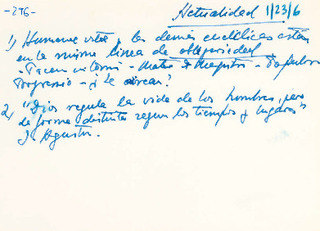 -276-
Actualidad 1/23/6
1) Humanae vitae y las demás encíclicas están
en la misma línea de obligoriedad
- Pacem in terris - Mater et Magistra - Populorum
Progressio - ¿Se acercan?
2) "Dios regula la vida de los hombres, pero
de forma distinta según los tiempos y lugares"
S. Agustín.